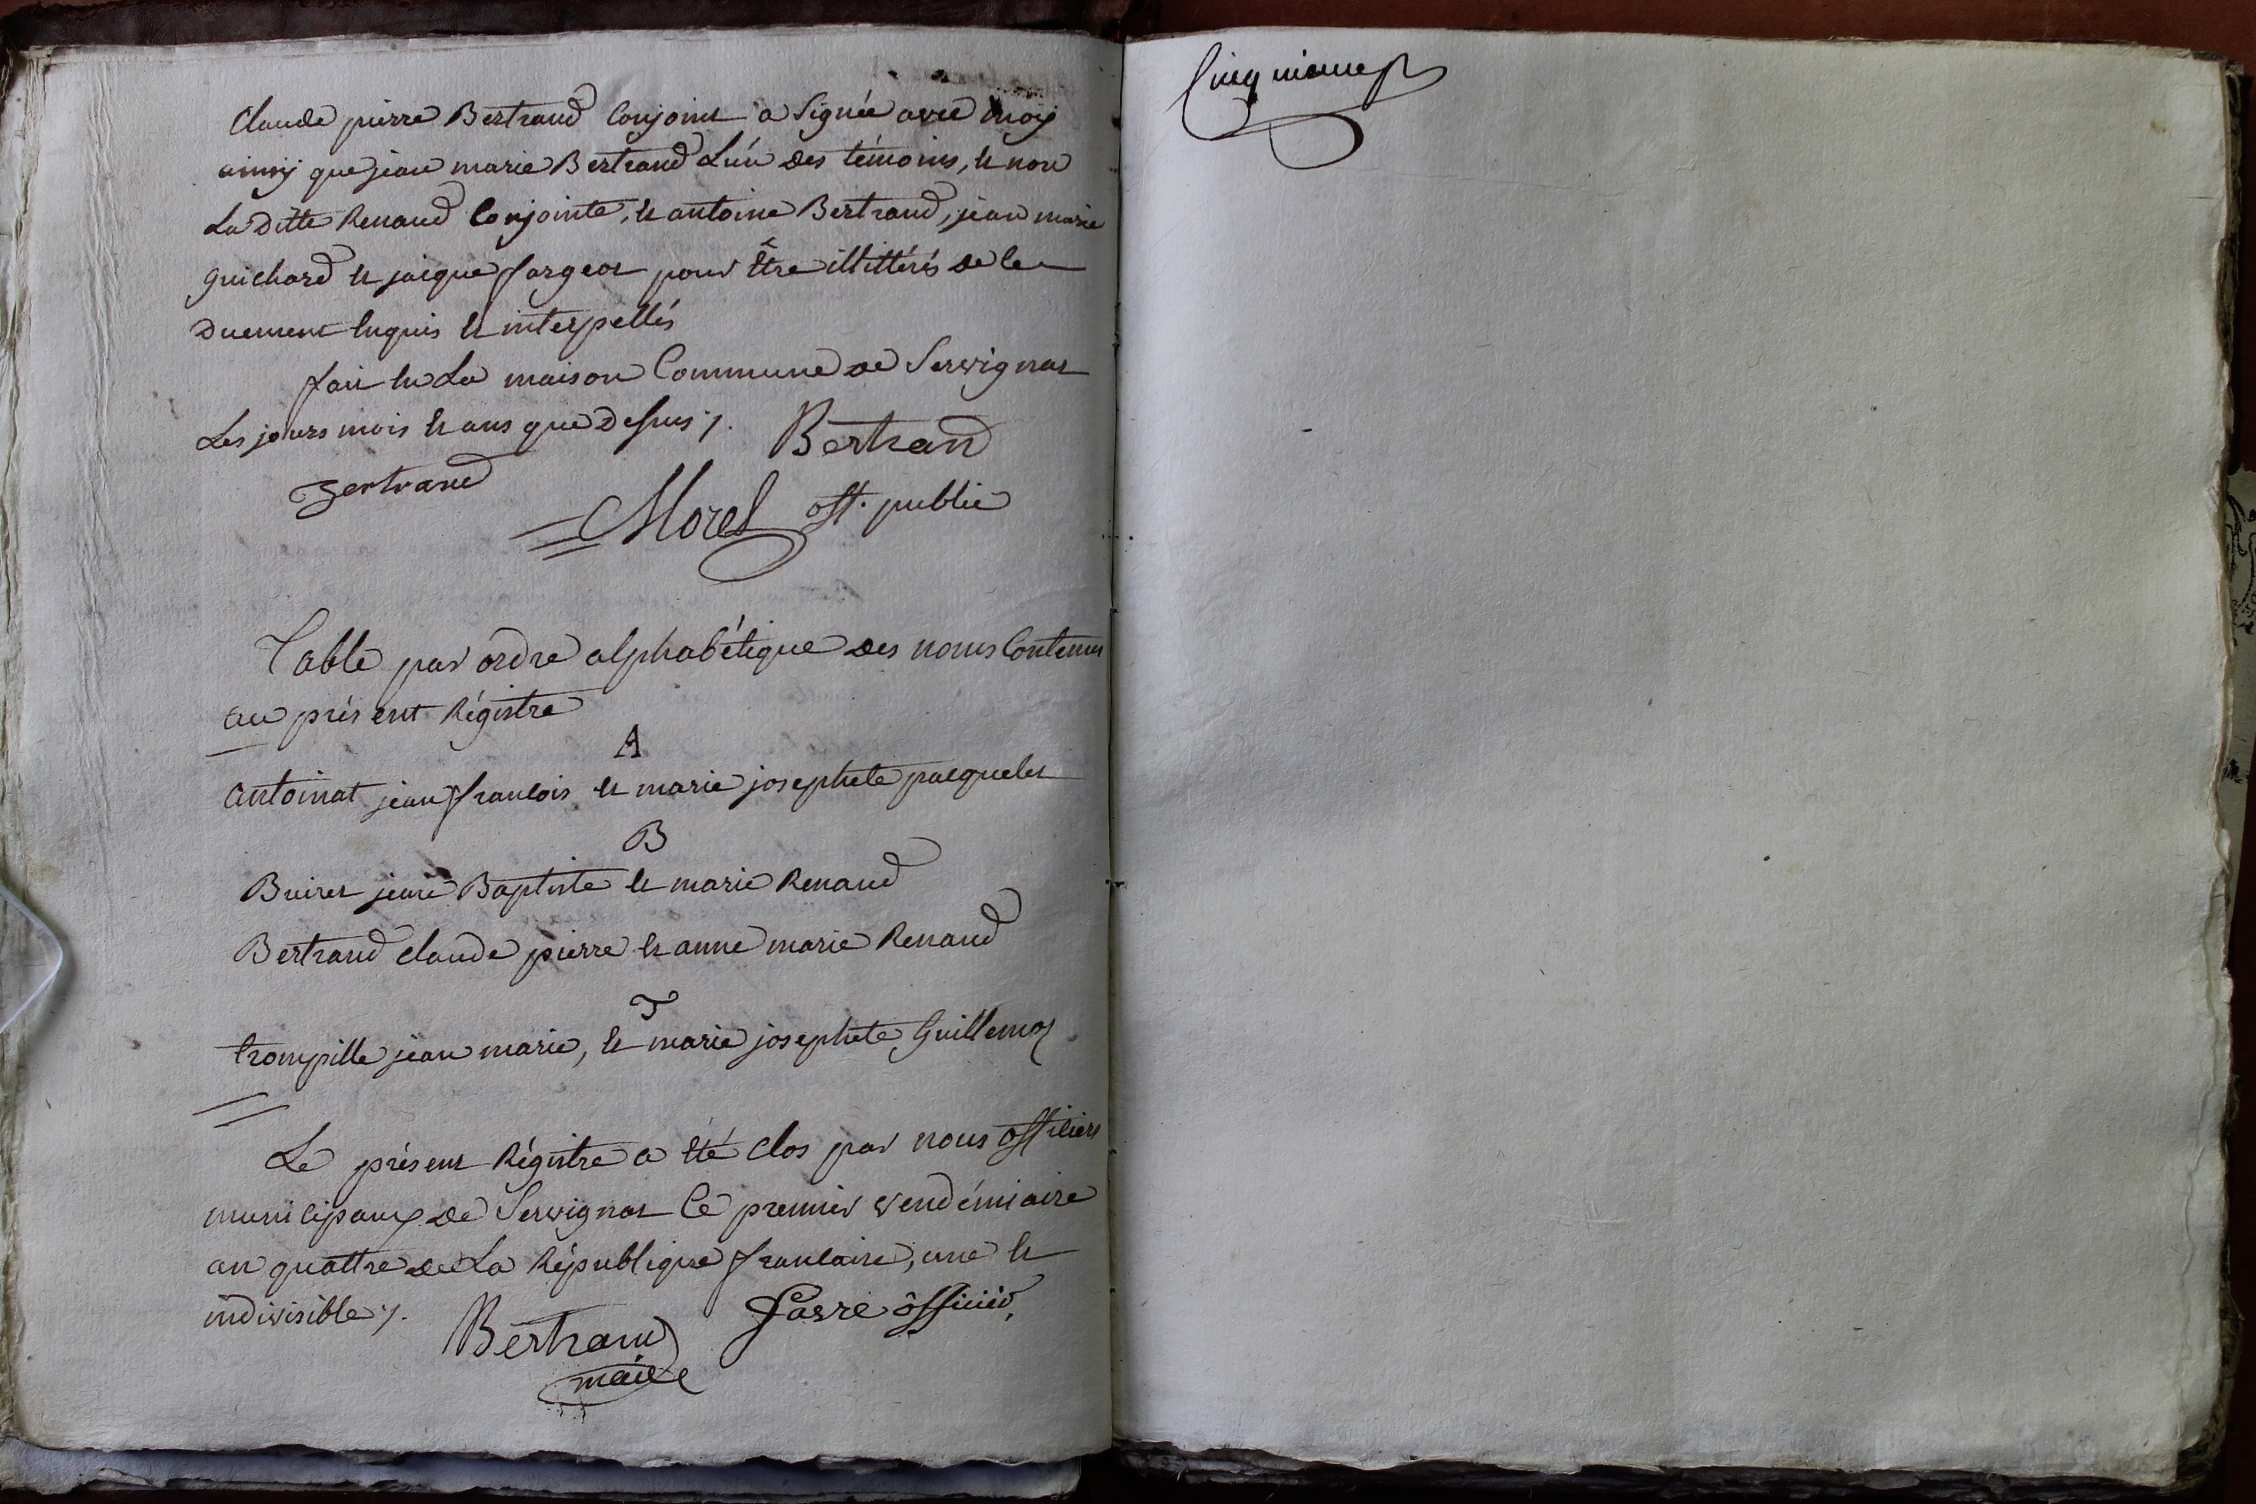 Claude pierre Bertrand Conjoint a signée avec moy
ainsy que jean marie Bertrand L'un des témoins, et non
La Ditte Renaud Conjointe, et antoine Bertrand, jean marie
guichard et jacque fargeot pour être illittérés de ce
Duement enquis et interpellés
fait en La maison Commune de Servignat
Les jours mois et ans que Dessus /.
Bertrand
Bertrand
Morel off. public
Table par ordre alphabétique des noms Contenus
au présent Régistre
A
antoinat jean francois et marie josephete pacquelet
B
Buiret jean Baptiste et marie Renaud
Bertrand claude pierre et anne marie Renaud
T
trompille jean marie, et marie josephete Guillemot
Le présent Régistre a été clos par nous officiers
municipaux de Servignat Ce premier vendémiaire
an quattre de La République francaise, une et
indivisible /.
Bertrand
maire
favre officier
Cinquieme